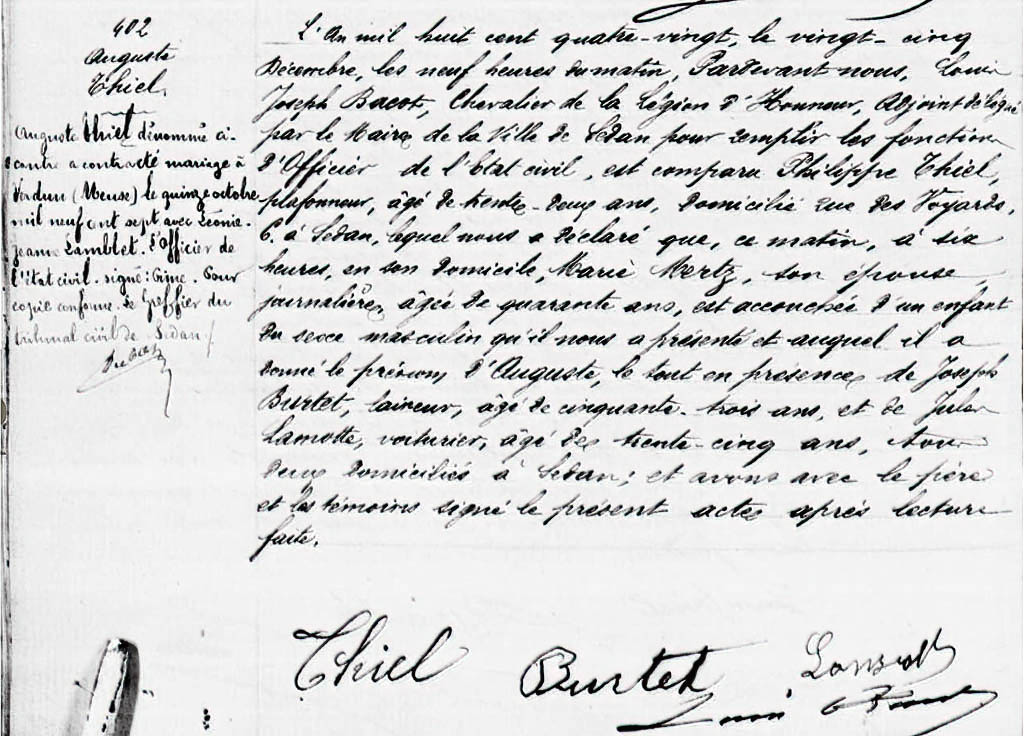 402
Auguste
Thiel
Auguste Thiel dénommé ci-
contre a contracté mariage à
Verdun (Meuse) le quinze octobre
mil neuf cent sept avec Léonie-
Jeanne Lamblet. L'Officier de
l'état civil. signé: . Pour
copie conforme. Le Greffier du
tribunal civil de Sedan
L'An mil huit cent quatre-vingt, le vingt-cinq
Décembre, les neuf heures du matin, Pardevant nous, Louis
Joseph Bacot, Chevalier de la Légion d'Honneur, Adjoint délégué
par le Maire de la Ville de Sedan pour remplir les fonctions
d'Officier de l'Etat civil, est comparu Philippe Thiel,
plafonneur, âgé de trente-deux ans, domicilié rue des Voyards,
6, à Sedan, lequel nous a déclaré que, ce matin, à six
heures, en son domicile, Marie Mertz, son épouse,
journalière, âgée de quarante ans, est accouchée d'un enfant
du sexe masculin qu'il nous a présenté et auquel il a
donné le prénom d'Auguste, le tout en présence de Joseph
Burtet, laineur, âgé de cinquante-trois ans, et de Jules
Lamotte, voiturier, âgé de trente-cinq ans, tous
deux domiciliés à Sedan; et avons avec le père
et les témoins signé le présent acte après lecture
faite.
Thiel Burtet